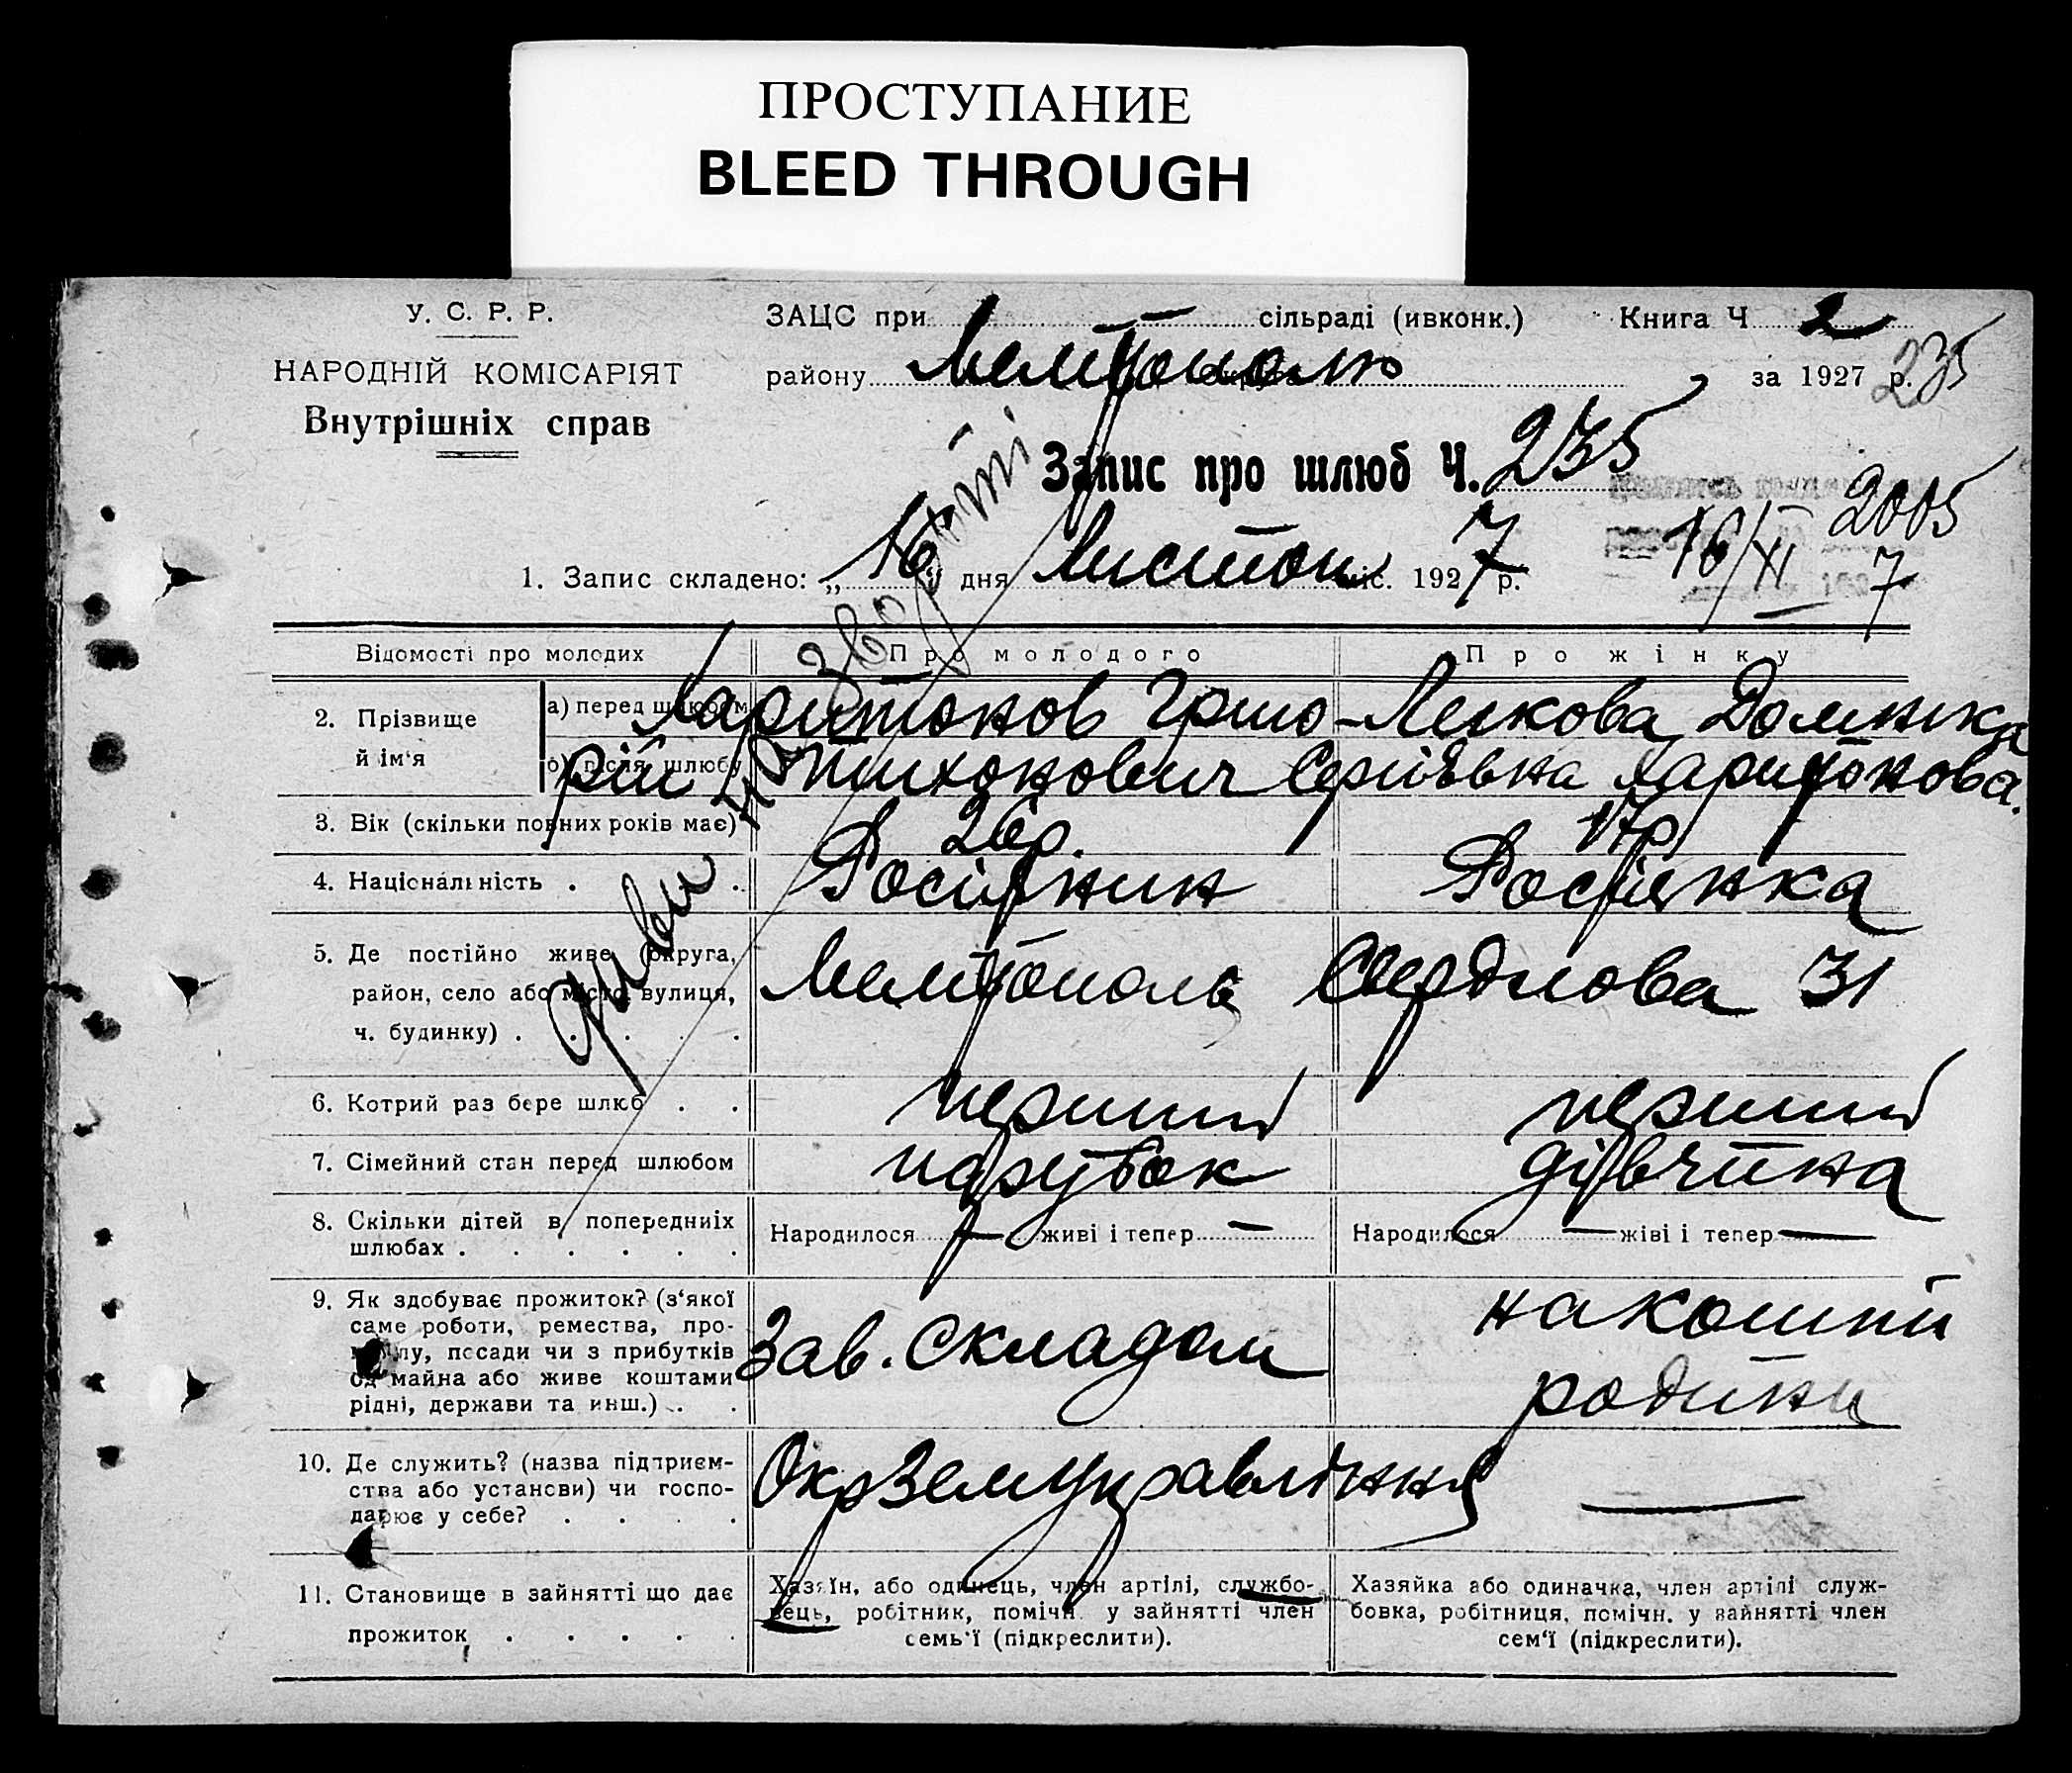 ПРОСТУПАНИЕ
BLEED THROUGH
У. С. Р. Р.
НАРОДНІЙ КОМІСАРІЯТ
Внутрішніх справ
ЗАЦС при сільраді (ивконк.) Книга Ч 2
району Мелітополю за 1927 р. 235
Запис про шлюб Ч. 235
2005
16/XI 7
1. Запис складено: „16“ дня Листоп міс. 1927 р.
Відомості про молодих
Про молодого
Про жінку
2. Прізвище й ім'я
а) перед шлюбом
б) після шлюбу
Харитонов Григо-
рій Тихонович
Легкова Домніка
Сергіївна Харитонова.
3. Вік (скільки повних років має)
26р.
17р.
4. Національність . .
Росіянин
Росіянка
5. Де постійно живе (округа,
район, село або місто, вулиця,
ч. будинку) . . . . .
Мелітополь Свердлова 31
6. Котрий раз бере шлюб . .
перший
перший
7. Сімейний стан перед шлюбом
парубок
дівчина
8. Скільки дітей в попередниіх
шлюбах . . . . . .
Народилося — живі і тепер —
Народилося — жіві і тепер —
9. Як здобуває прожиток? (з'якої
саме роботи, ремества, про-
мислу, посади чи з прибутків
од майна або живе коштами
рідні, держави та инш.) . .
Зав. складом
на кошти
родини
10. Де служить? (назва підприєм-
ства або установи) чи госпо-
дарює у себе? . . . .
ОкрЗемУправління
—
11. Становище в зайнятті що дає
прожиток . . . . .
Хазяїн, або одинець, член артілі, службо-
вець, робітник, помічн. у зайнятті член
семь'ї (підкреслити).
Хазяйка або одиначка, член артілі служ-
бовка, робітниця, помічн. у зайнятті член
сем'ї (підкреслити).